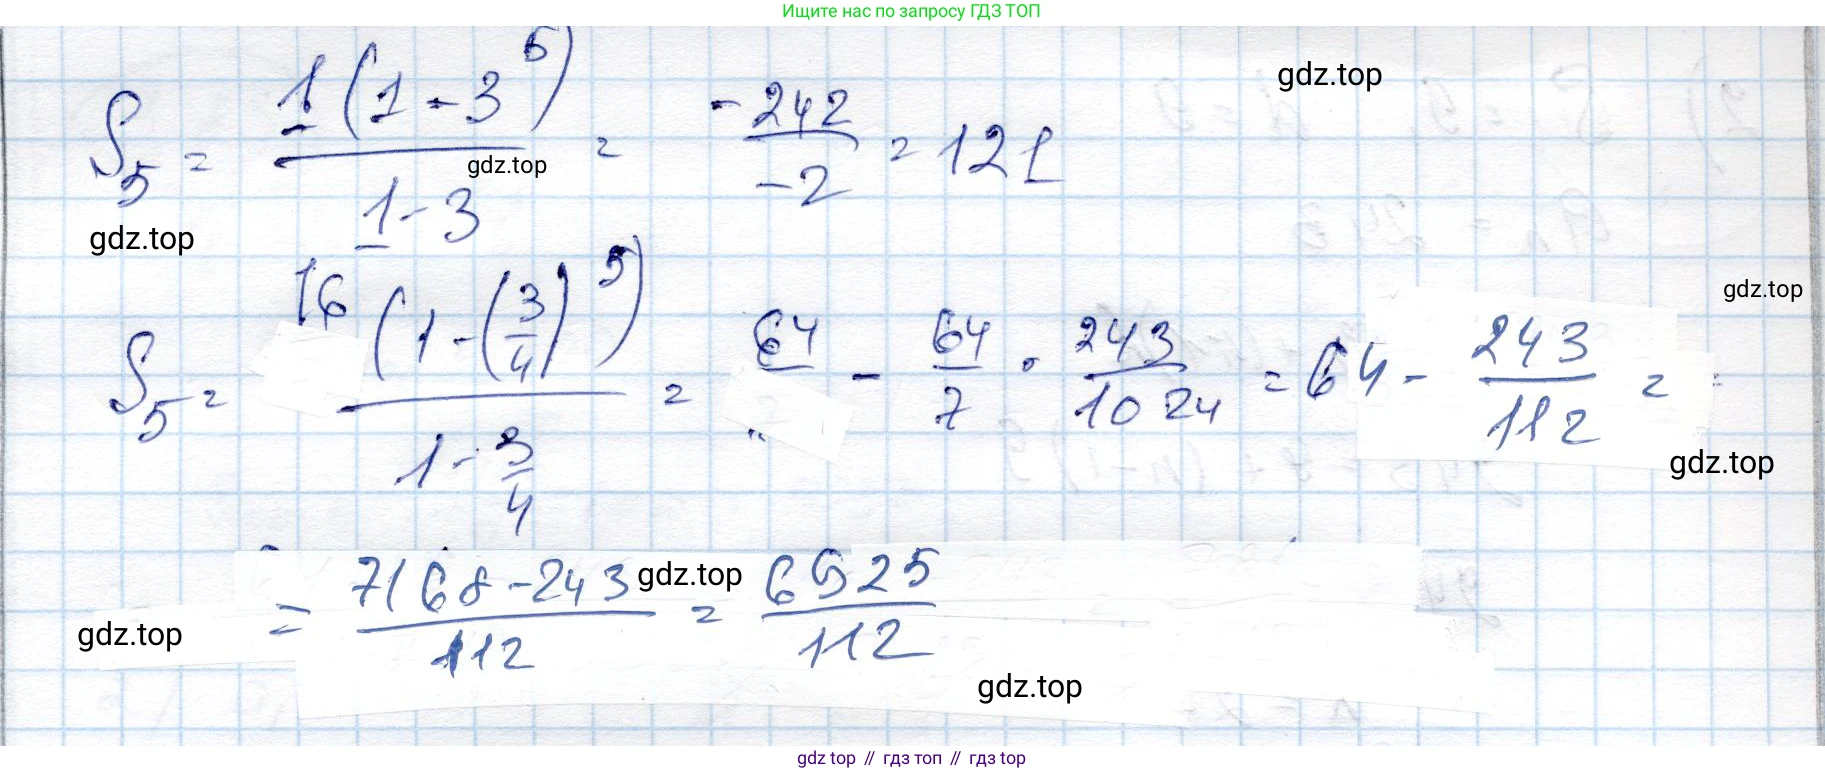 Ищите нас по запросу ГДЗ ТОП
gdz.top
S₅ = 1(1-3⁵) / 1-3 = -242 / -2 = 121
gdz.top
gdz.top
gdz.top
S₅ = 16(1-(3/4)⁵) / 1-3/4 = 64 - 64/7 · 243/1024 = 64 - 243/112 =
gdz.top
= 7168-243 / 112 = 6925 / 112
gdz.top
gdz.top
gdz.top
gdz top // гдз топ // gdz top